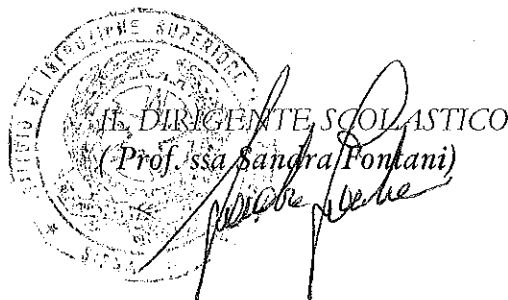 ISTITUTO DI ISTRUZIONE SUPERIORE
IL DIRIGENTE SCOLASTICO
(Prof. ssa Sandra Fontani)